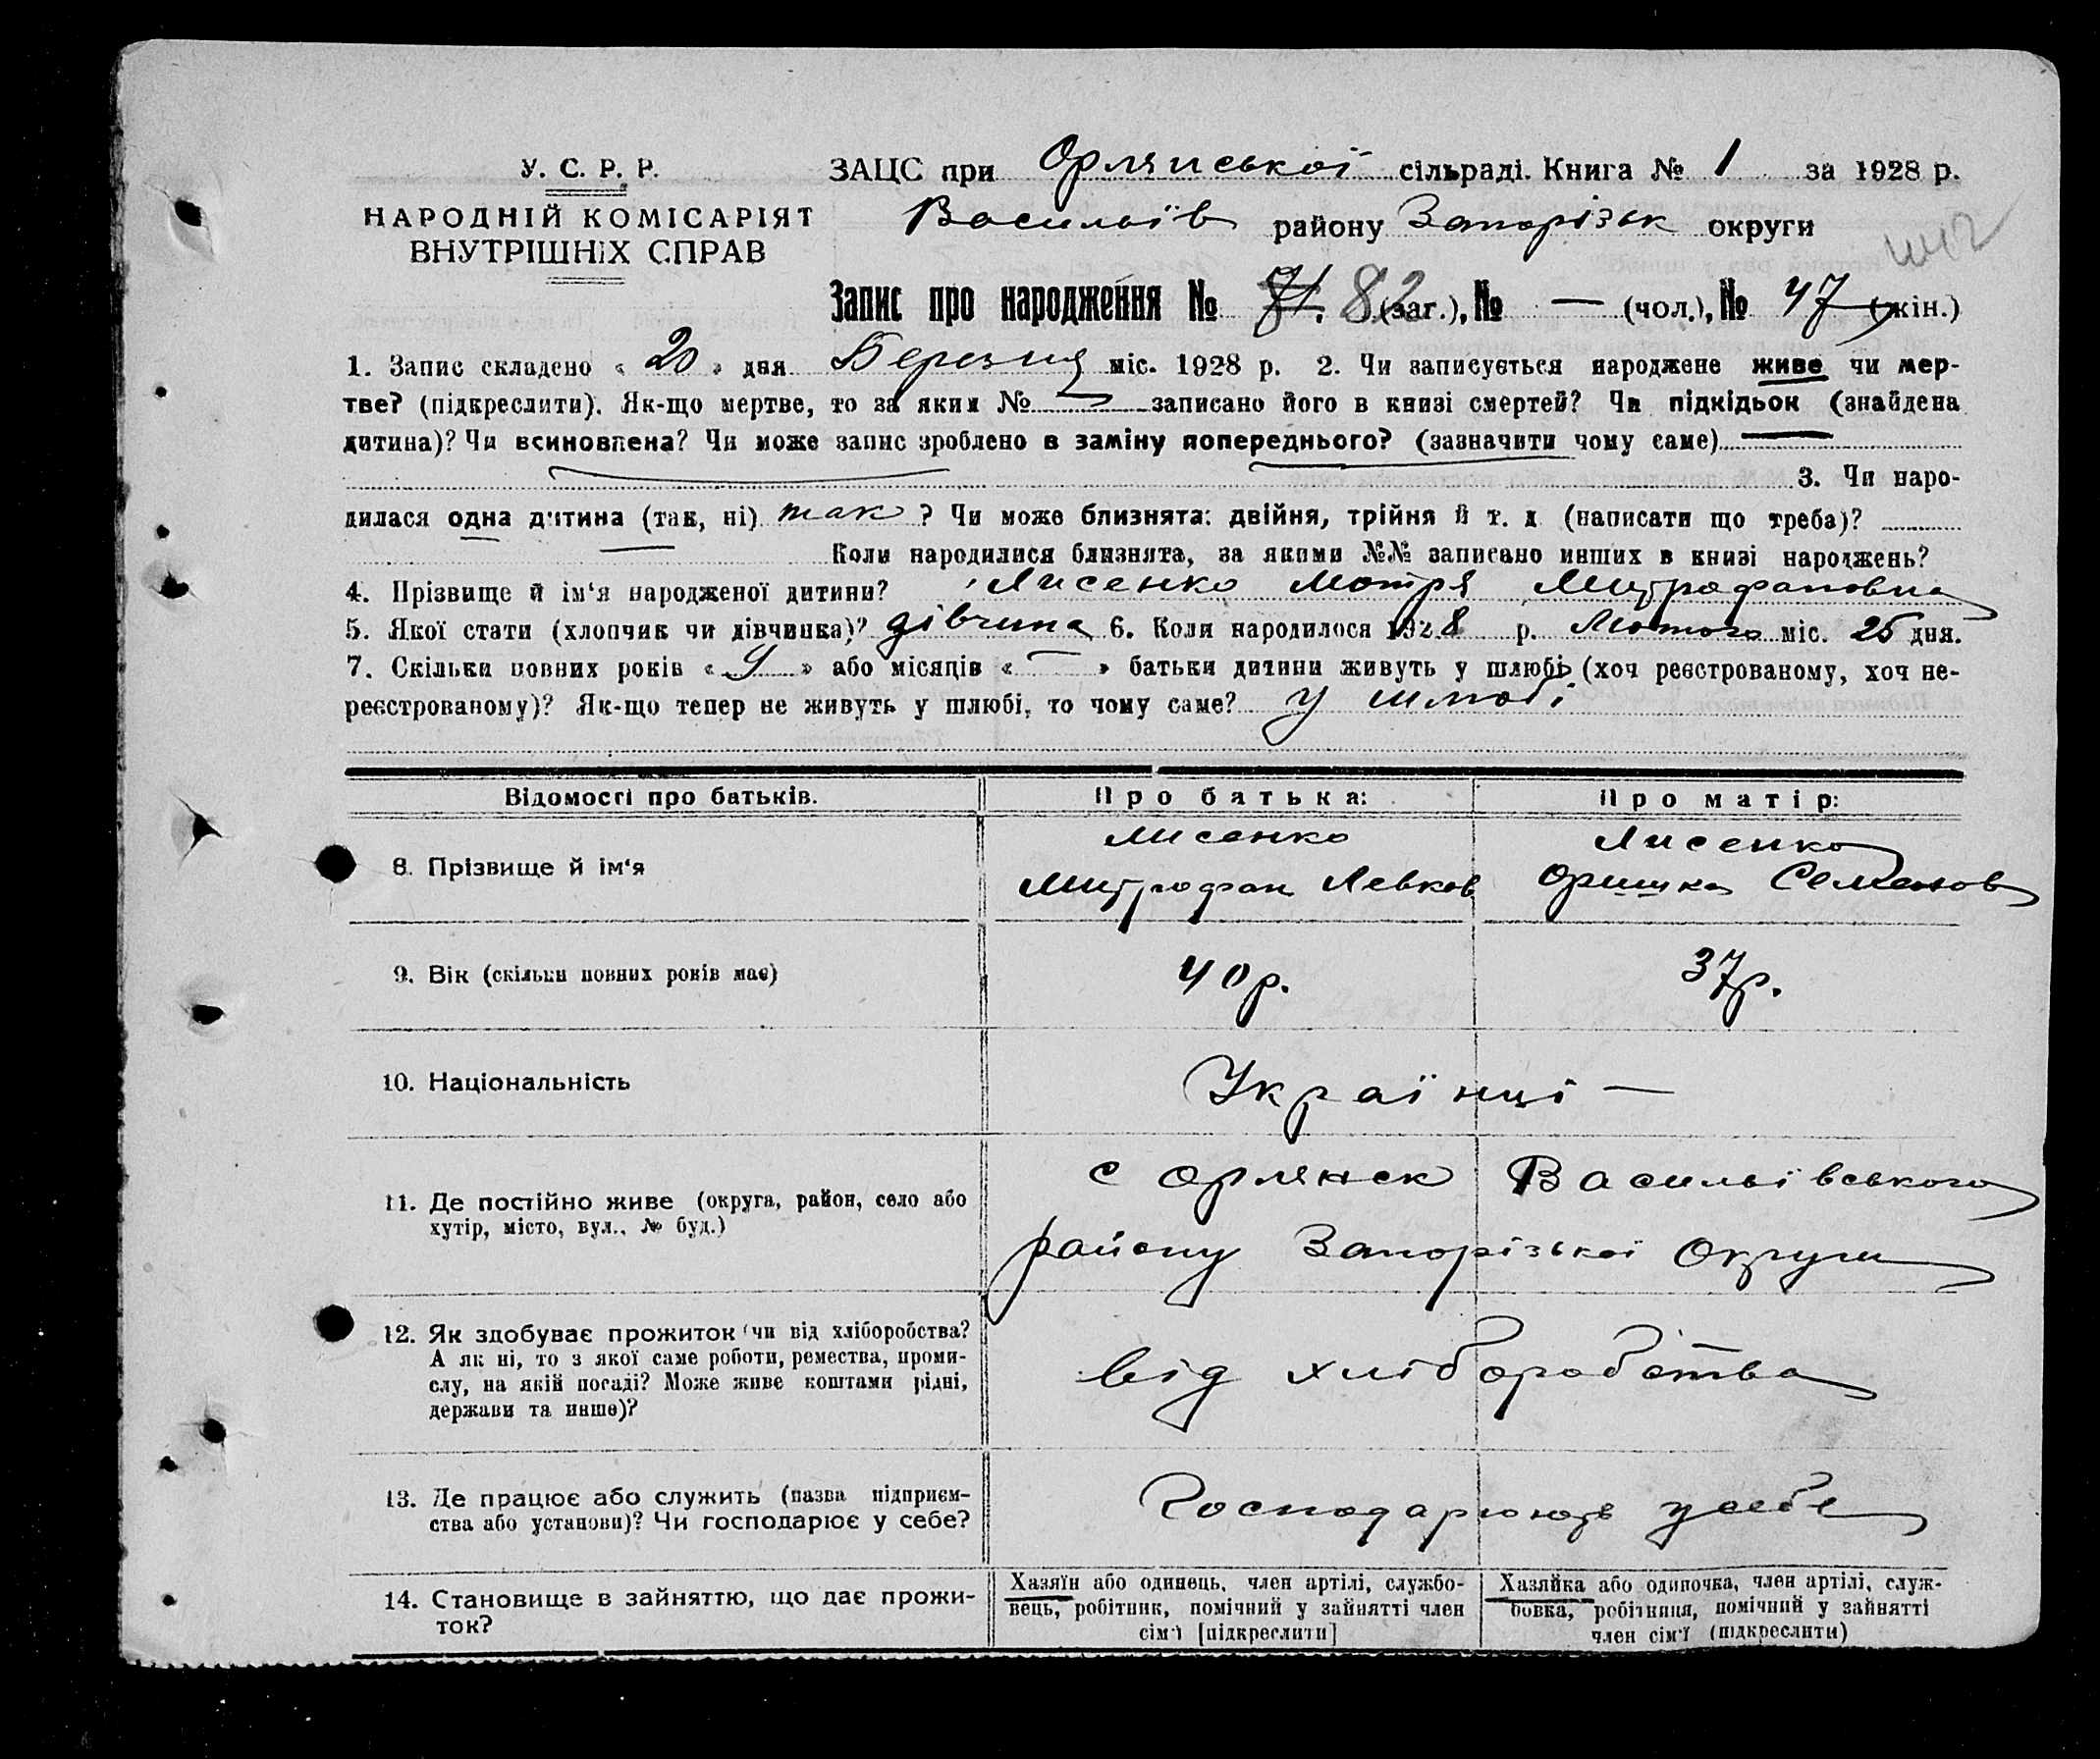 У. С. Р. Р.
НАРОДНІЙ КОМІСАРІЯТ
ВНУТРІШНІХ СПРАВ
ЗАЦС при Орлянської сільраді. Книга № 1 за 1928 р.
Васильїв району Запорізьк округи
Запис про народження № 71. 82 (заг.), № — (чол.), № 47 (жін.)
1. Запис складено « 20 » дня Березня міс. 1928 р. 2. Чи записується народжене живе чи мер-
тве? (підкреслити). Як-що мертве, то за яким № — записано його в книзі смертей? Чи підкідьок (знайдена
дитина)? Чи всиновлена? Чи може запис зроблено в заміну попереднього? (зазначити чому саме) —
3. Чи наро-
дилася одна дитина (так, ні) так ? Чи може близнята: двійня, трійня й т. д (написати що треба)?
Коли народилися близнята, за якими №№ записано инших в книзі народжень?
4. Прізвище й ім‘я народженої дитини? Лисенко Мотря Митрофановна
5. Якої стати (хлопчик чи дівчинка)? дівчина 6. Коли народилося 1928 р. Лютого міс. 25 дня.
7. Скільки повних років « 9 » або місяців « — » батьки дитини живуть у шлюбі (хоч реєстрованому, хоч не-
реєстрованому)? Як-що тепер не живуть у шлюбі, то чому саме? У шлюбі
Відомості про батьків. Про батька: Про матір:
8. Прізвище й ім‘я
Лисенко
Митрофан Левков
Лисенко
Оришка Семенов
9. Вік (скільки повних років має) 40 р. 37 р.
10. Національність Українці —
11. Де постійно живе (округа, район, село або
хутір, місто, вул., № буд.)
с Орлянск Васильївського
району Запорізької Округи
12. Як здобуває прожиток (чи від хліборобства?
А як ні, то з якої саме роботи, ремества, проми-
слу, на якій посаді? Може живе коштами рідні,
держави та инше)?
від хліборобства
13. Де працює або служить (назва підприєм-
ства або установи)? Чи господарює у себе?
Господарюють у себе
14. Становище в зайняттю, що дає прожи-
ток?
Хазяїн або одинець, член артілі, службо-
вець, робітник, помічний у зайнятті член
сім‘ї [підкреслити]
Хазяйка або одиночка, член артілі, служ-
бовка, робітниця, помічний у зайнятті
член сім‘ї (підкреслити)